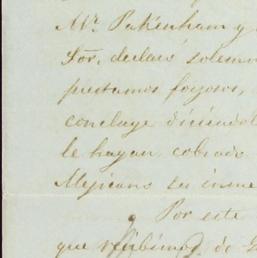 Mr. Pakenham y
Sor. declaró solemn
prestamos forzosos,
concluye diciendol
le hayan cobrado
Mejicano su inme
Por este
que recibimos de